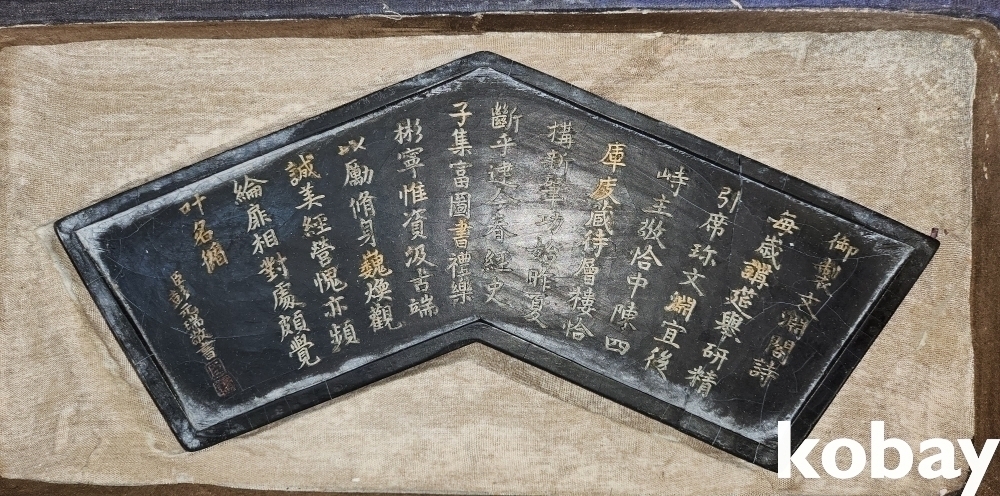 御製文淵閣詩
每歲講筵舉研精
引席珍文淵宜後
峙主敬恰中陳四
庫庋藏待層樓恰
搆新肇功始昨夏
斷手逮今春經史
子集富圖書禮樂
彬寧惟資汲古端
以勵脩身巍煥觀
誠美經營愧亦頻
綸扉相對處頗覺
叶名淵
臣彭元瑞敬書
kobay